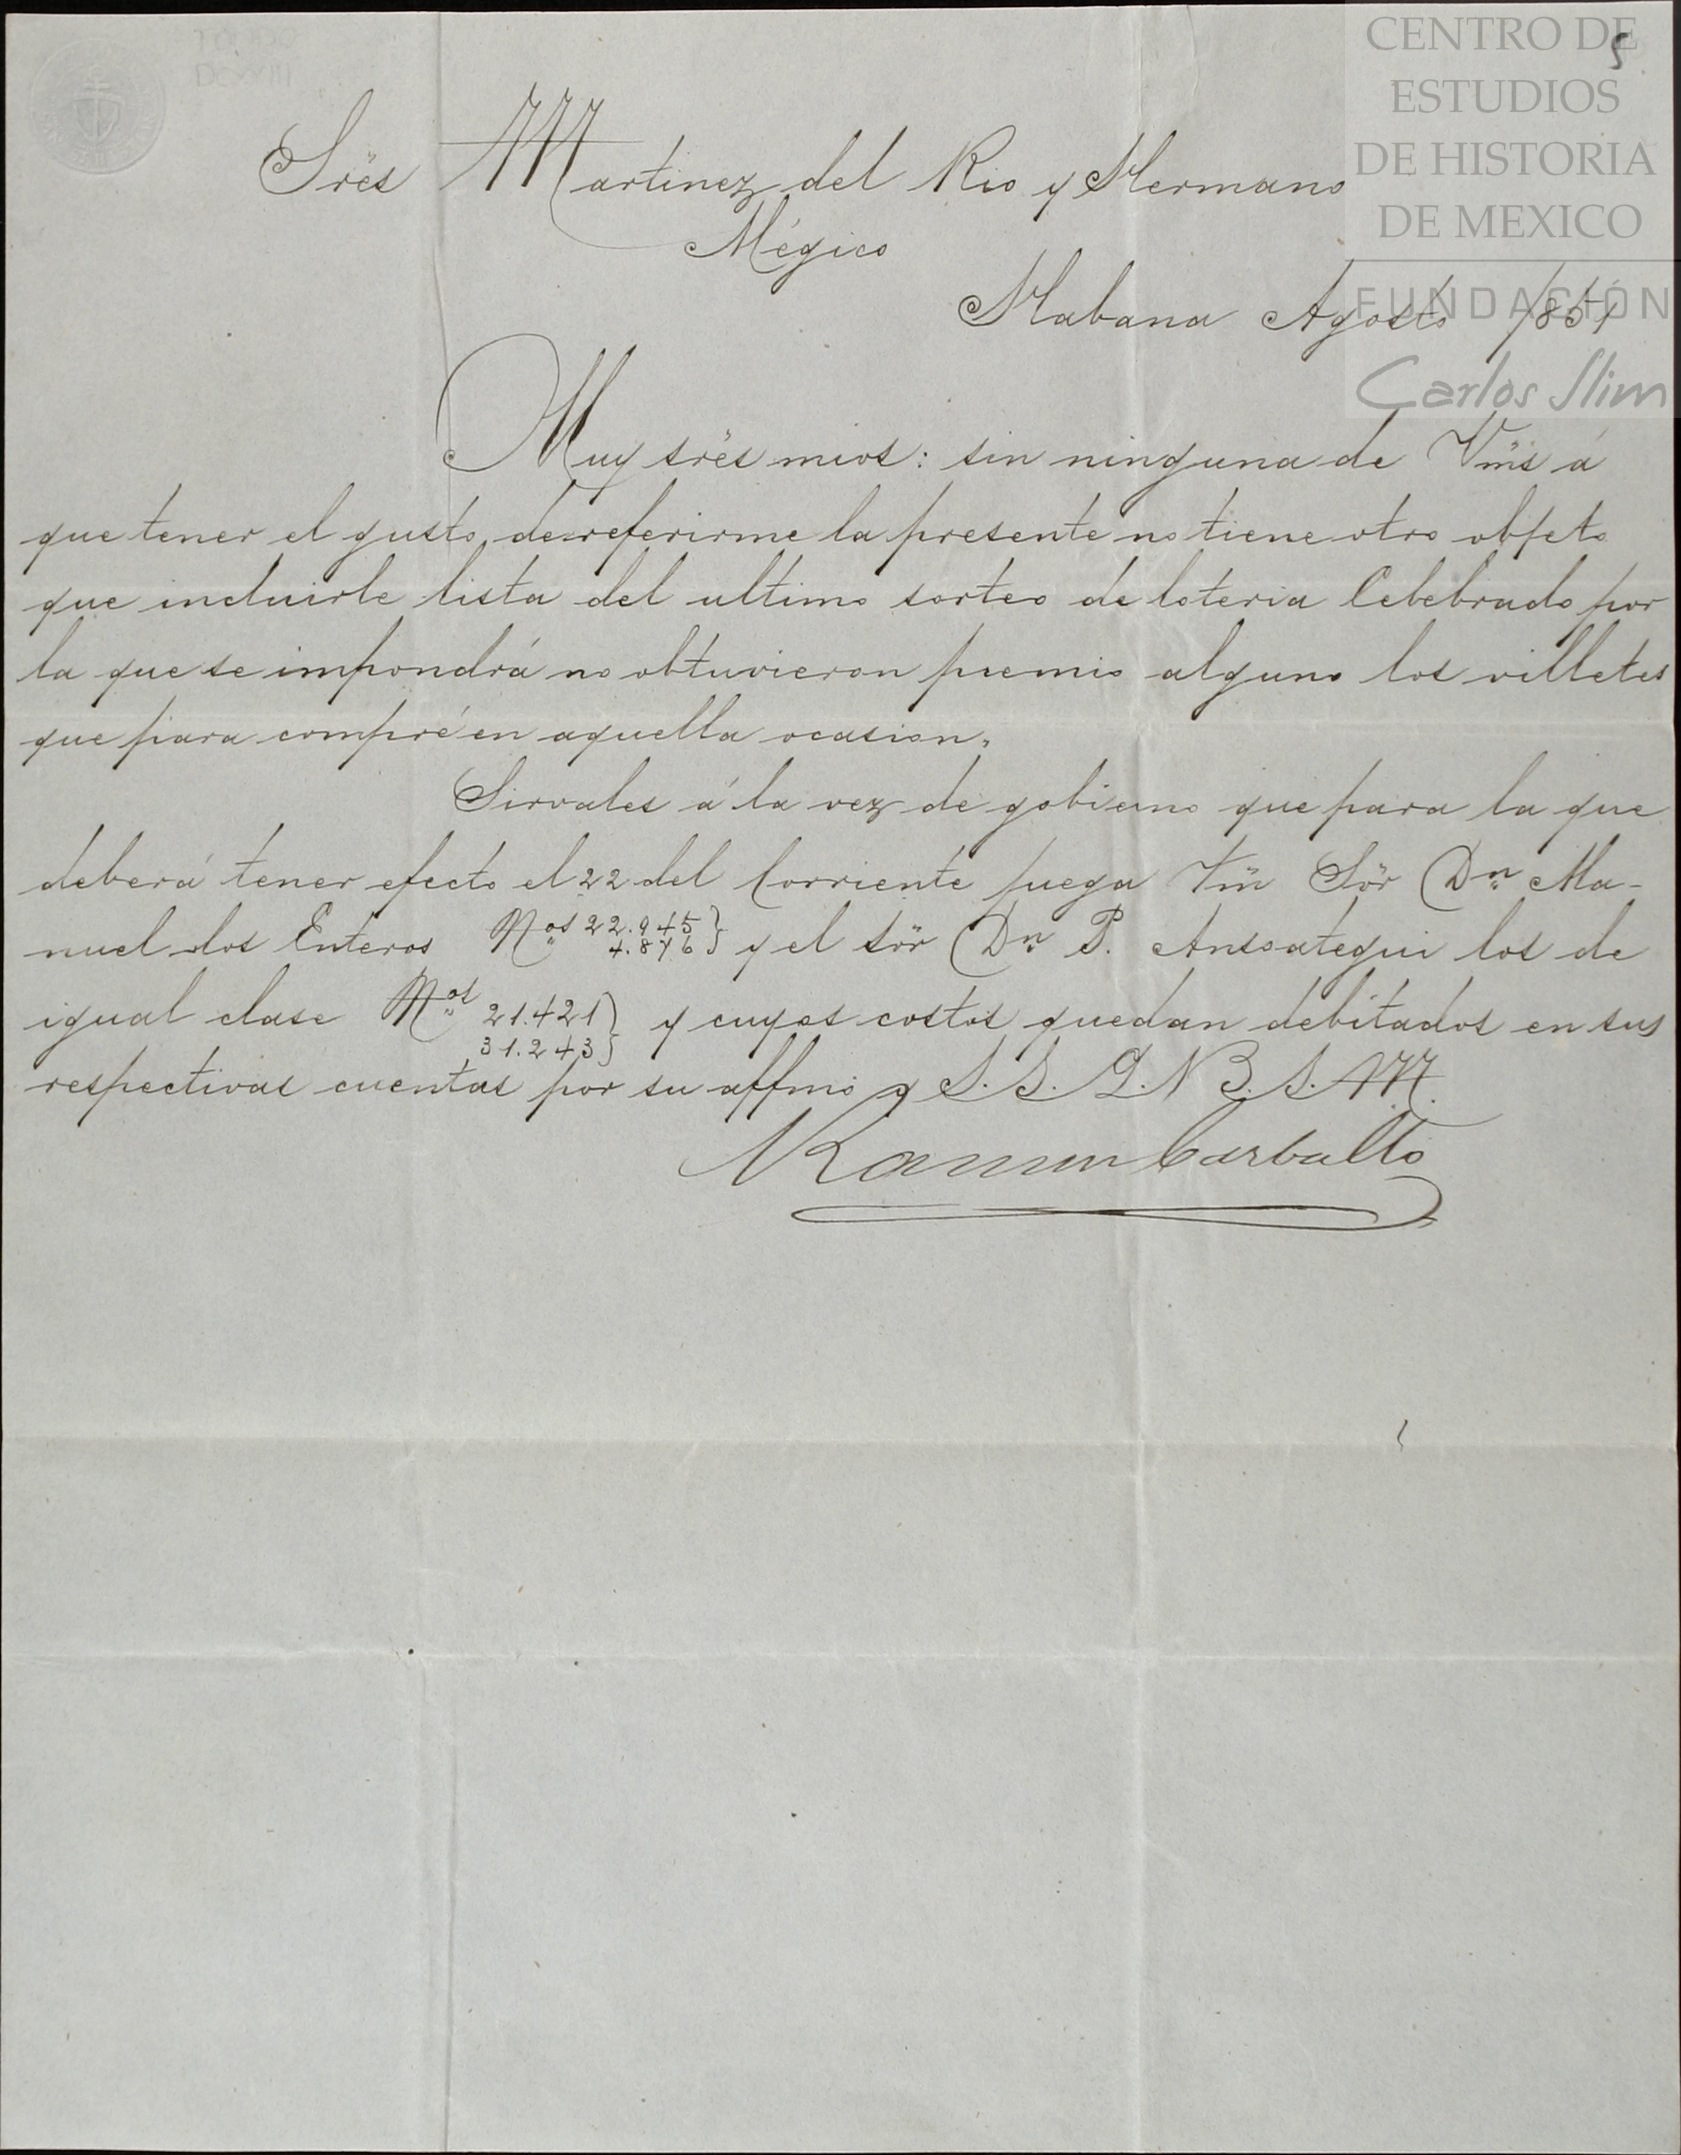 CENTRO DE
ESTUDIOS
DE HISTORIA
DE MEXICO
FUNDACIÓN
Carlos Slim
5
Srës Martinez del Rio y Hermano
Mégico
Habana Agosto 1851
Muy srës mios: sin ninguna de Vm̈s á
que tener el gusto de referirme la presente no tiene otro objeto
que incluirle lista del ultimo sorteo de loteria Celebrado por
la que se impondrá no obtuvieron premio alguno los villetes
que para compré en aquella ocasion.
Sirvales á la vez de gobierno que para la que
deberá tener efecto el 22 del Corriente juega Vm̈ Sör Dn Ma-
nuel los Enteros Nos 22.945 } y el sör Dn P. Ansoategui los de
4.876
igual clase Nos 21.421 } y cuyos costos quedan debitados en sus
31.243
respectivas cuentas por su affmo y S. S. Q. N B. S. M.
Ramon Carballo